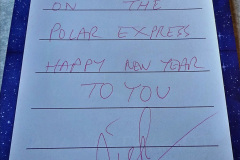 ON THE
POLAR EXPRESS
HAPPY NEW YEAR
TO YOU